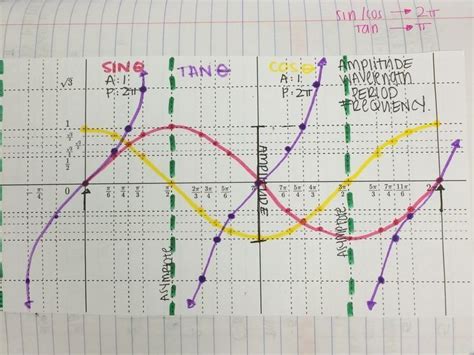 sin/cos → 2π
tan → π
SINθ
A:1
P:2π
TANθ
COSθ
A:1
P:2π
AMPLITUDE
WAVELENGTH
PERIOD
FREQUENCY
√3
1
0
AMPLITUDE
π/6 π/4 π/3 2π/3 3π/4 5π/6 7π/6 5π/4 4π/3 5π/3 7π/4 11π/6
ASYMPTOTE
ASYMPTOTE